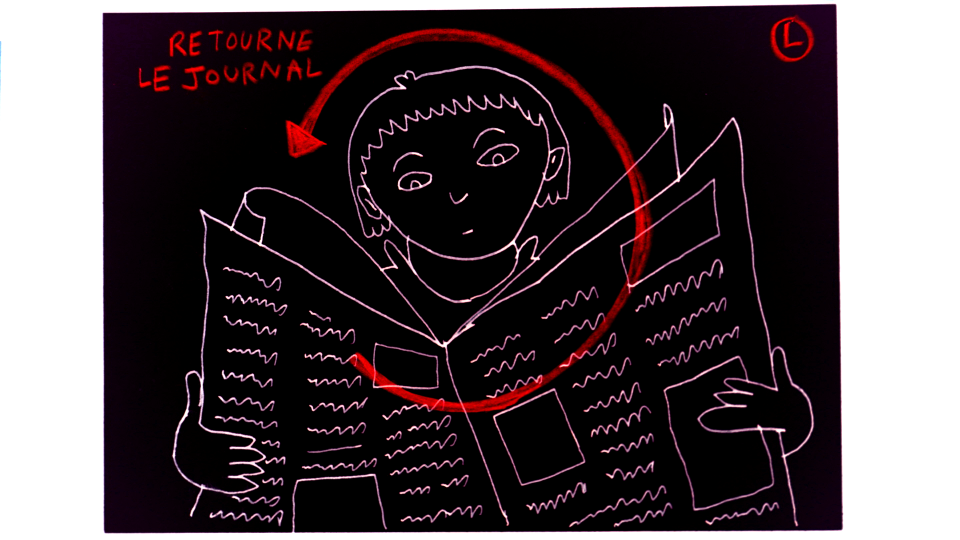 RETOURNE
LE JOURNAL
L